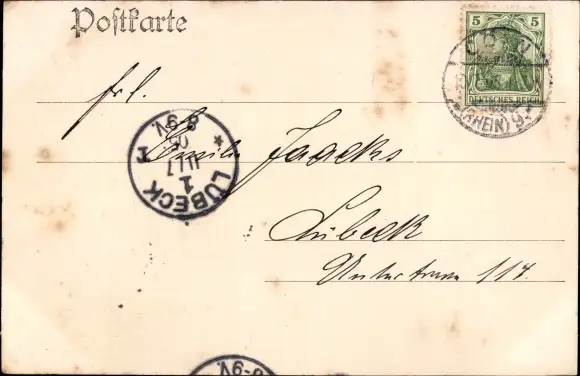 Postkarte
5 5
DEUTSCHES REICH
(RHEIN) 9.
frl.
Emilie Jaacks
Lübeck
Untertrave 114.
LÜBECK
1
8-9V.
8-9V.